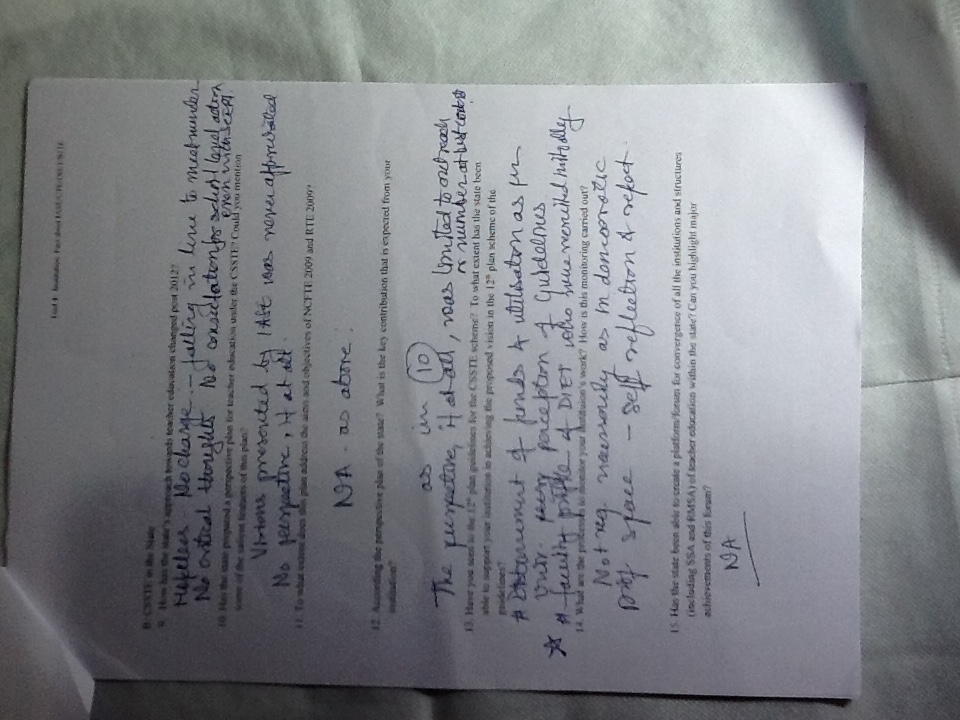 B CSSTE in the State
9. How has the state's approach towards teacher education changed post 2012?
Hapless - No change - falling in line to meet number
No critical thoughts No consultation for school / legal action even with SCERT.
10. Has the state prepared a perspective plan for teacher education under the CSSTE? Could you mention
some of the salient features of this plan?
Visions presented by IASE was never appreciated
No perspective, if at all.
11. To what extent does this plan address the aims and objectives of NCFTE 2009 and RTE 2009?
NA - as above.
12. According the perspective plan of the state? What is the key contribution that is expected from your
institution?
as in 10
The perspective, if at all, was limited to outreach
number at but cost
13. Have you seen to the 12th plan guidelines for the CSSTE scheme? To what extent has the state been
able to support your institution in achieving the proposed vision in the 12th plan scheme of the
guidelines?
# Disbursement of funds & utilisation as per
their perception of Guidelines
# faculty profile of DIET initially
14. What are the processes to monitor your institution's work? How is this monitoring carried out?
Not reg. rigorously as in democratic
prof space - self reflection & report.
15. Has the state been able to create a platform/forum for convergence of all the institutions and structures
(including SSA and RMSA) of teacher education within the state? Can you highlight major
achievements of this forum?
NA